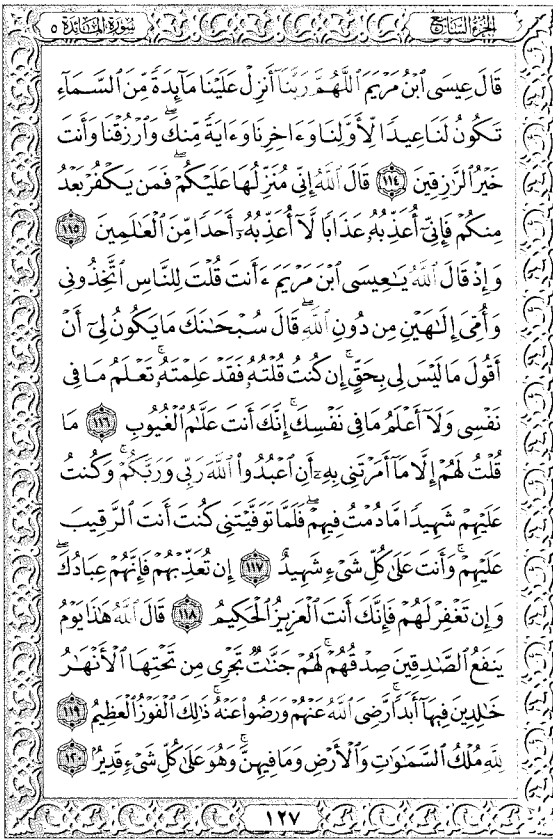 سورة المائدة ٥
الجزء السابع
قَالَ عِيسَى ٱبْنُ مَرْيَمَ ٱللَّهُمَّ رَبَّنَآ أَنزِلْ عَلَيْنَا مَآئِدَةً مِّنَ ٱلسَّمَآءِ
تَكُونُ لَنَا عِيدًا لِّأَوَّلِنَا وَءَاخِرِنَا وَءَايَةً مِّنكَۖ وَٱرْزُقْنَا وَأَنتَ
خَيْرُ ٱلرَّٰزِقِينَ ١١٤ قَالَ ٱللَّهُ إِنِّى مُنَزِّلُهَا عَلَيْكُمْۖ فَمَن يَكْفُرْ بَعْدُ
مِنكُمْ فَإِنِّىٓ أُعَذِّبُهُۥ عَذَابًا لَّآ أُعَذِّبُهُۥٓ أَحَدًا مِّنَ ٱلْعَٰلَمِينَ ١١٥
وَإِذْ قَالَ ٱللَّهُ يَٰعِيسَى ٱبْنَ مَرْيَمَ ءَأَنتَ قُلْتَ لِلنَّاسِ ٱتَّخِذُونِى
وَأُمِّىَ إِلَٰهَيْنِ مِن دُونِ ٱللَّهِۖ قَالَ سُبْحَٰنَكَ مَا يَكُونُ لِىٓ أَنْ
أَقُولَ مَا لَيْسَ لِى بِحَقٍّۚ إِن كُنتُ قُلْتُهُۥ فَقَدْ عَلِمْتَهُۥۚ تَعْلَمُ مَا فِى
نَفْسِى وَلَآ أَعْلَمُ مَا فِى نَفْسِكَۚ إِنَّكَ أَنتَ عَلَّٰمُ ٱلْغُيُوبِ ١١٦ مَا
قُلْتُ لَهُمْ إِلَّا مَآ أَمَرْتَنِى بِهِۦٓ أَنِ ٱعْبُدُوا۟ ٱللَّهَ رَبِّى وَرَبَّكُمْۚ وَكُنتُ
عَلَيْهِمْ شَهِيدًا مَّا دُمْتُ فِيهِمْۖ فَلَمَّا تَوَفَّيْتَنِى كُنتَ أَنتَ ٱلرَّقِيبَ
عَلَيْهِمْۚ وَأَنتَ عَلَىٰ كُلِّ شَىْءٍ شَهِيدٌ ١١٧ إِن تُعَذِّبْهُمْ فَإِنَّهُمْ عِبَادُكَۖ
وَإِن تَغْفِرْ لَهُمْ فَإِنَّكَ أَنتَ ٱلْعَزِيزُ ٱلْحَكِيمُ ١١٨ قَالَ ٱللَّهُ هَٰذَا يَوْمُ
يَنفَعُ ٱلصَّٰدِقِينَ صِدْقُهُمْۚ لَهُمْ جَنَّٰتٌ تَجْرِى مِن تَحْتِهَا ٱلْأَنْهَٰرُ
خَٰلِدِينَ فِيهَآ أَبَدًاۚ رَّضِىَ ٱللَّهُ عَنْهُمْ وَرَضُوا۟ عَنْهُۚ ذَٰلِكَ ٱلْفَوْزُ ٱلْعَظِيمُ ١١٩
لِلَّهِ مُلْكُ ٱلسَّمَٰوَٰتِ وَٱلْأَرْضِ وَمَا فِيهِنَّۚ وَهُوَ عَلَىٰ كُلِّ شَىْءٍ قَدِيرٌۢ ١٢٠
١٢٧